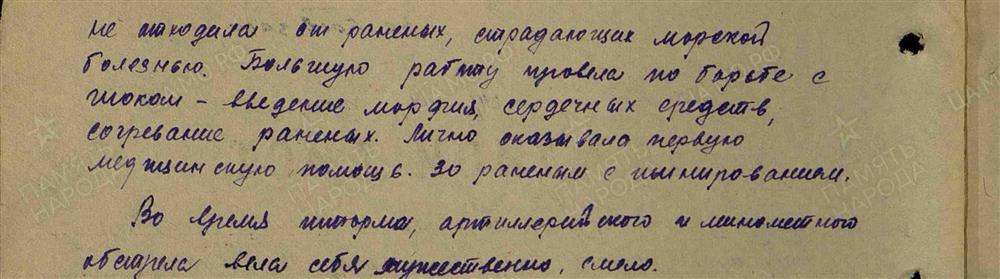 не отходила от раненых, страдающих морской
болезнью. Большую работу провела по борьбе с
шоком - введение морфия, сердечных средств,
согревание раненых. Лично оказывала первую
медицинскую помощь. 30 раненым с шинированием.
Во время шторма, артиллерийского и минометного
обстрела вела себя мужественно, смело.